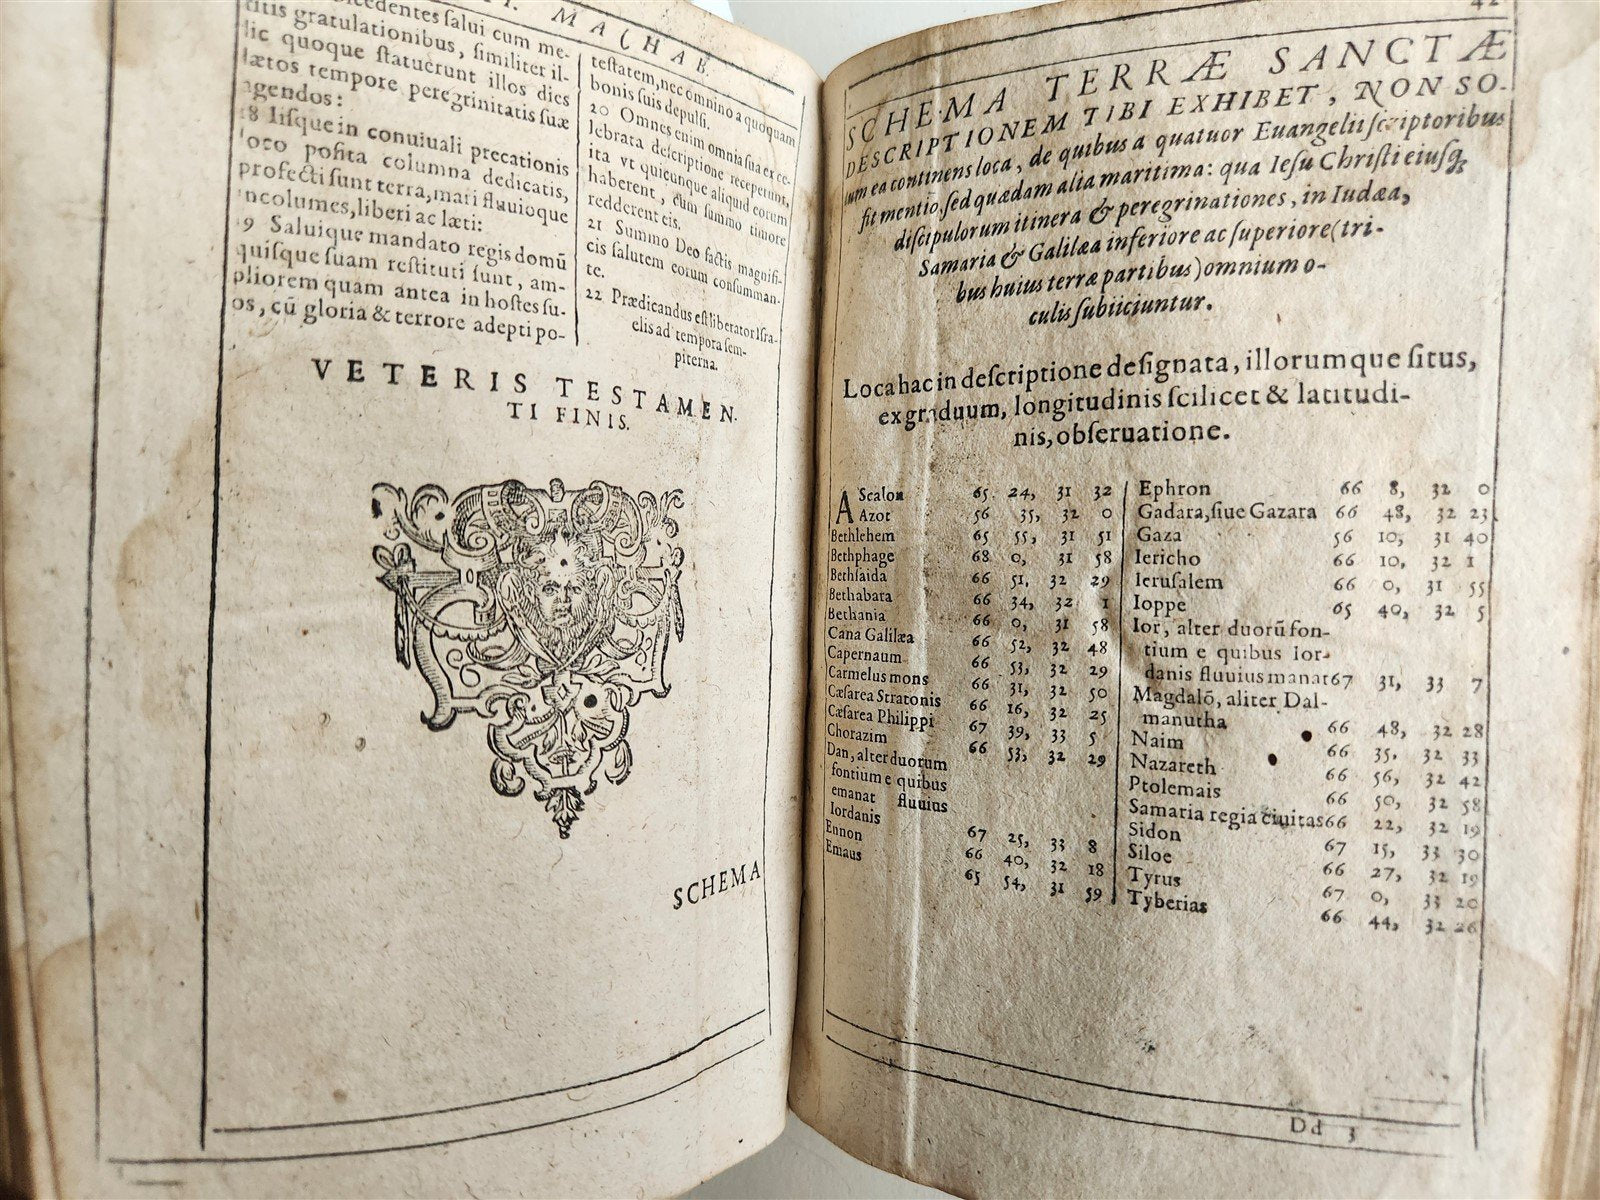 MACHAB.
cedentes ſalui cum me-
titis gratulationibus, ſimiliter il-
lic quoque ſtatuerunt illos dies
lætos tempore peregrinitatis ſuæ
agendos:
18 Iiſque in conuiuali precationis
loco poſita columna dedicatis,
profecti ſunt terra, mari fluuioque
incolumes, liberi ac læti:
19 Saluique mandato regis domū
quiſque ſuam reſtituti ſunt, am-
pliorem quam antea in hoſtes ſu-
os, cū gloria & terrore adepti po-
teſtatem, nec omnino a quoquam
bonis ſuis depulſi.
20 Omnes enim omnia ſua ex ce-
lebrata deſcriptione receperunt,
ita vt quicunque aliquid eorum
haberent, cum ſummo timore
redderent eis.
21 Summo Deo factis magnifi-
cis ſalutem eorum conſumman-
te.
22 Prædicandus eſt liberator Iſra-
elis ad tempora ſem-
piterna.
VETERIS TESTAMEN-
TI FINIS.
SCHEMA
42
SCHEMA TERRÆ SANCTÆ
DESCRIPTIONEM TIBI EXHIBET, NON SO-
lum ea continens loca, de quibus a quatuor Euangelii ſcriptoribus
fit mentio, ſed quædam alia maritima: qua Ieſu Chriſti eiuſq;
diſcipulorum itinera & peregrinationes, in Iudæa,
Samaria & Galilæa inferiore ac ſuperiore (tri-
bus huius terræ partibus) omnium o-
culis ſubiiciuntur.
Loca hac in deſcriptione deſignata, illorumque ſitus,
ex graduum, longitudinis ſcilicet & latitudi-
nis, obſeruatione.
AScalon 65. 24, 31 32
Azot 56 35, 32 0
Bethlehem 65 55, 31 51
Bethphage 68 0, 31 58
Bethſaida 66 51, 32 29
Bethabara 66 34, 32 1
Bethania 66 0, 31 58
Cana Galilæa 66 52, 32 48
Capernaum 66 53, 32 29
Carmelus mons 66 31, 32 50
Cæſarea Stratonis 66 16, 32 25
Cæſarea Philippi 67 39, 33 5
Chorazim 66 53, 32 29
Dan, alter duorum
fontium e quibus
emanat fluuius
Iordanis 67 25, 33 8
Ennon 66 40, 32 18
Emaus 65 54, 31 59
Ephron 66 8, 32 0
Gadara, ſiue Gazara 66 48, 32 23
Gaza 56 10, 31 40
Iericho 66 10, 32 1
Ieruſalem 66 0, 31 55
Ioppe 65 40, 32 5
Ior, alter duorū fon-
tium e quibus Ior-
danis fluuius manat 67 31, 33 7
Magdalō, aliter Dal-
manutha 66 48, 32 28
Naim 66 35. 32 33
Nazareth 66 56, 32 42
Ptolemais 66 50, 32 58
Samaria regia ciuitas 66 22, 32 19
Sidon 67 15, 33 30
Siloe 66 27, 32 19
Tyrus 67 0, 33 20
Tyberias 66 44, 32 26
Dd 3